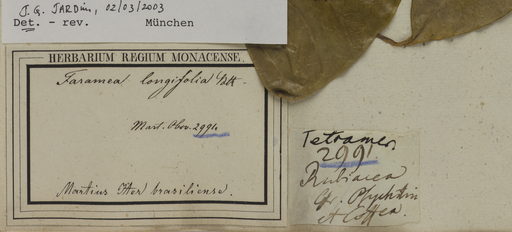 J. G. JARDIM, 02/03/2003
Det. - rev. München
HERBARIUM REGIUM MONACENSE.
Faramea longifolia Bth
Mart. Obsv. 2991.
Martius Iter brasiliense.
Tetramer.
2991
Rubiacea
gr. Psychotri
et Coffea.